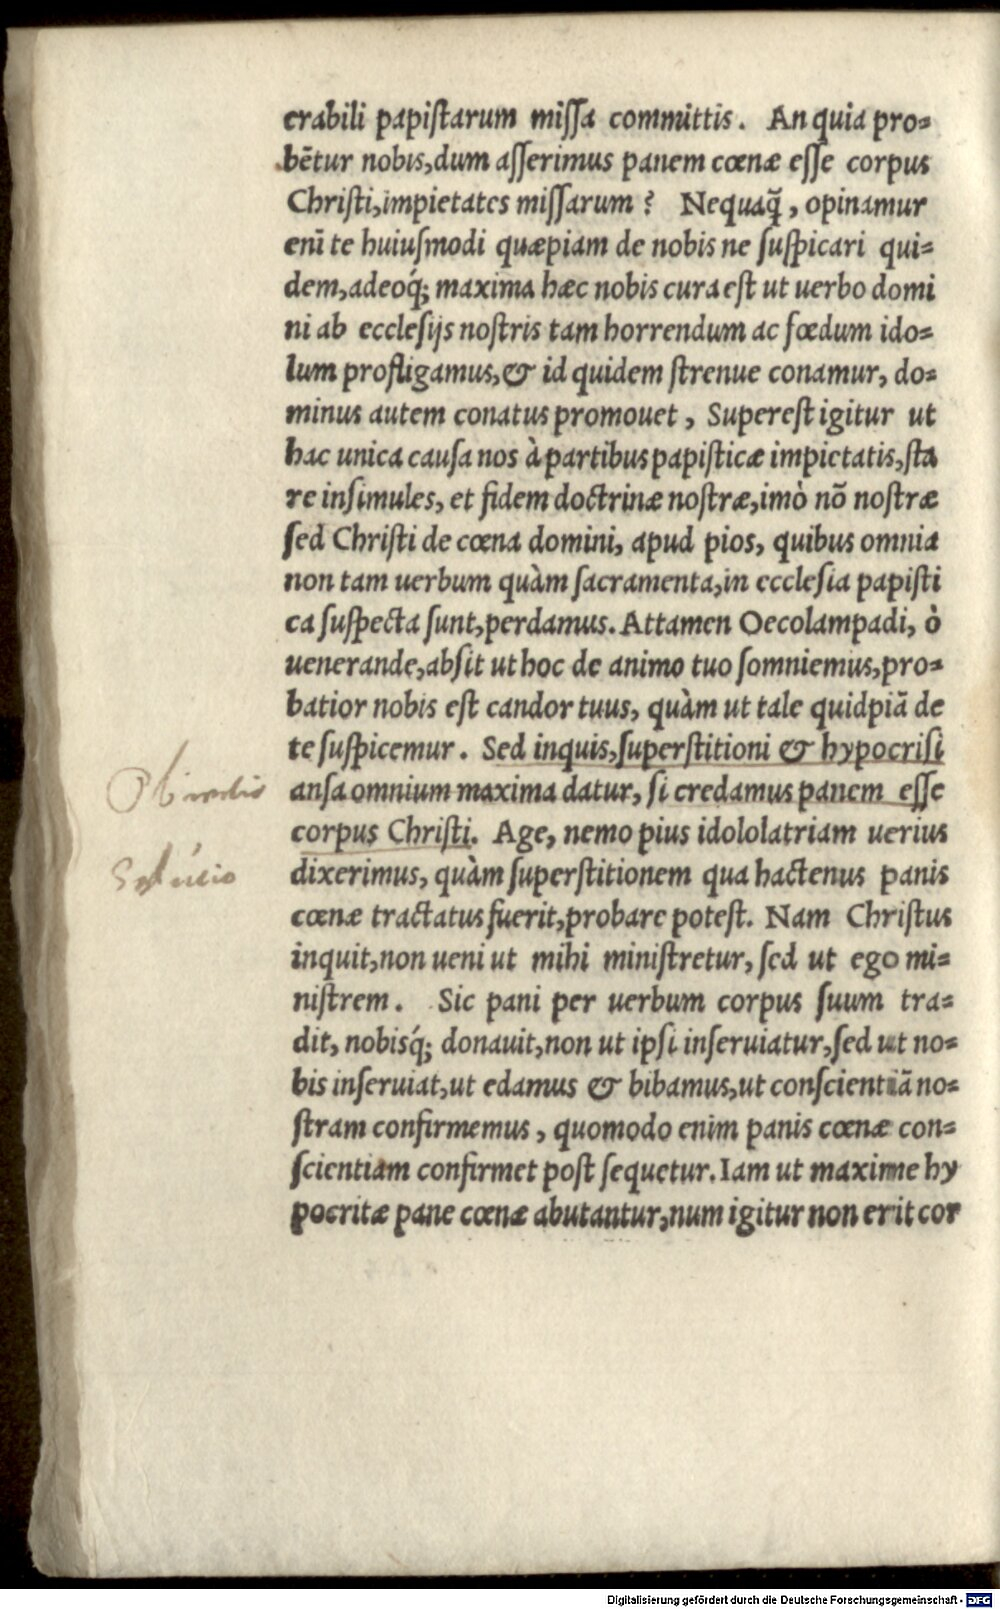 erabili papiſtarum miſſa committis. An quia pro=
bētur nobis,dum aſſerimus panem cœnæ eſſe corpus
Chriſti,impietates miſſarum? Nequaq̃, opinamur
enī te huiuſmodi quæpiam de nobis ne ſuſpicari qui=
dem,adeoq́; maxima hæc nobis cura eſt ut uerbo domi
ni ab eccleſijs noſtris tam horrendum ac fœdum ido=
lum profligamus,& id quidem ſtrenue conamur, do=
minus autem conatus promouet, Supereſt igitur ut
hac unica cauſa nos à partibus papiſticæ impietatis,ſta
re inſimules, et fidem doctrinæ noſtræ,imò nō noſtræ
ſed Chriſti de cœna domini, apud pios, quibus omnia
non tam uerbum quàm ſacramenta,in eccleſia papiſti
ca ſuſpecta ſunt,perdamus. Attamen Oecolampadi, ò
uenerande,abſit ut hoc de animo tuo ſomniemus,pro=
batior nobis eſt candor tuus, quàm ut tale quidpiā de
te ſuſpicemur. Sed inquis,ſuperſtitioni & hypocriſi
anſa omnium maxima datur, ſi credamus panem eſſe
corpus Chriſti. Age, nemo pius idololatriam uerius
dixerimus, quàm ſuperſtitionem qua hactenus panis
cœnæ tractatus fuerit,probare poteſt. Nam Chriſtus
inquit,non ueni ut mihi miniſtretur, ſed ut ego mi=
niſtrem. Sic pani per uerbum corpus ſuum tra=
dit, nobisq́; donauit,non ut ipſi inſeruiatur,ſed ut no=
bis inſeruiat,ut edamus & bibamus,ut conſcientiā no=
ſtram confirmemus, quomodo enim panis cœnæ con=
ſcientiam confirmet poſt ſequetur. Iam ut maxime hy
pocritæ pane cœnæ abutantur,num igitur non erit cor
Digitalisierung gefördert durch die Deutsche Forschungsgemeinschaft - DFG